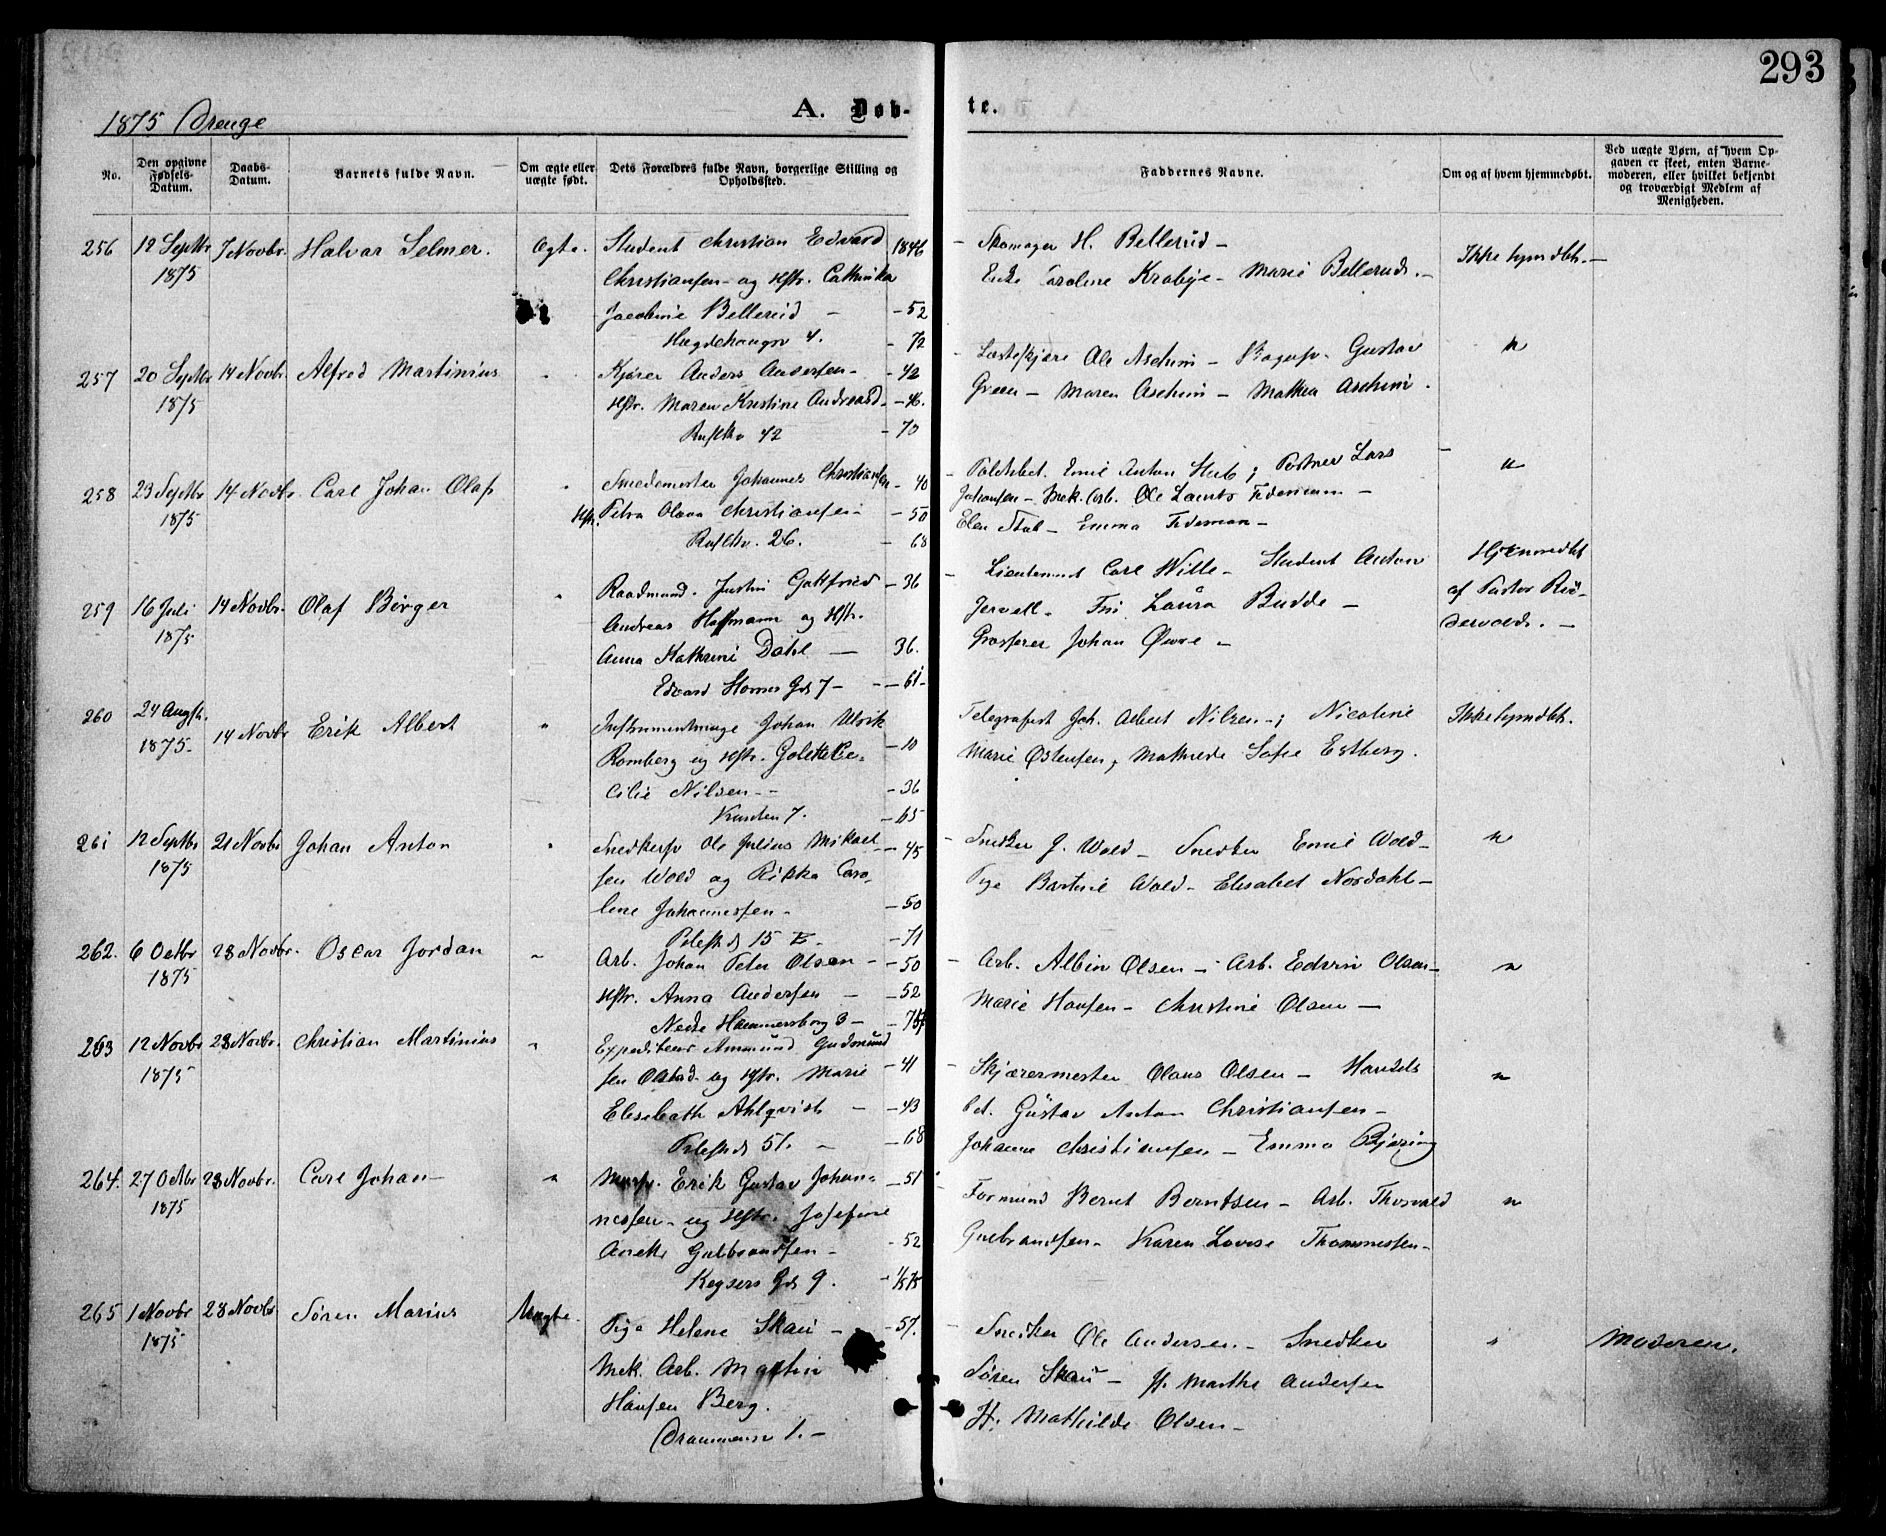 293
1875 Drenge
A. Døb-
te.
No.
Den opgivne Fødsels-Datum.
Daabs-Datum.
Barnets fulde Navn.
Om ægte eller uægte født.
Dets Forældres fulde Navn, borgerlige Stilling og Opholdssted.
Faddernes Navne.
Om og af hvem hjemmedøbt.
Ved uægte Børn, af hvem Opgaven er skeet, enten Barnemoderen, eller hvilket bekjendt og troværdigt Medlem af Menigheden.
256 12 Septbr 7 Novbr. Halvar Selmer. Ægte. Student Christian Edvard 1846 - Skomager H. Bellerud -
1875 Christiansen - og Hstr. Cathinka Enke Caroline Krabye - Marie Bellerud. - Ikke hjmdbt. -
Jacobine Bellerud - - 52
Hægdehaugsv 4. - 72
257 20 Septbr 14 Novbr. Alfred Martinius Kjører Anders Andersen - - 42 Ole Aschim - Gustav "
1875 Hstr. Maren Kristine - 46. Green - Maren Aschim - Mathea Aschim.
42 - 70
258 23 Septbr 14 Novbr. Carl Johan Olaf Smedemester Johannes Christiansen - 40 - Emil Anton Lars "
1875 Hstr. Petra Olava Christiansen - - 50 Johansen - Mek. Arb. Ole -
26. - 68 Emma -
259 16 Juli 14 Novbr. Olaf Birger Raadmand. Gottfried - 36 - Lieutenant Carl Wille - Student Anton Hjemmedbt
1875 Andreas Hoffmann og Hstr. Jervell - Frk Laura Budde - af Pastor Rid-
Anna Kathrine Dahl - 36. Grosserer Johan - dervold. -
Edvard Storms Gd 7 - - 61 -
260 24 Augst. 14 Novbr Erik Albert " Instrumentmage Johan Ulrik Telegrafist Joh. Albert Nilsen -; Nicoline Ikke hjmdbt.
1875. Romberg og Hstr. - 10 Marie Ostensen, Mathilde Sofie Estberg.
cilie Nilsen - - 36
7. - 65
261 12 Septbr 21 Novbr Johan Anton " Snedkersv Ole Julius Mikael- - 45 - Snedker J. Wold - Snedker Emil Wold - "
1875 sen Wold og Rikka Caro- Pige Wold - Elisabet Nordahl -
line Johannessen - - 50
Pilestd 15 B. - 71
262. 6 Octbr 28 Novbr. Oscar Jordan " Arb. Johan Peter Olsen - - 50 - Arb. Albin Olsen - Arb. Edvin Olsen - "
1875 Hstr. Anna Andersen - - 52 Marie Hansen - Christine Olsen -
Nedre Hammersborg 3 -
263 12 Novbr 28 Novbr. Christian Martinius " Expediteur Ammund Gudmund - Skjærermester Olaus Olsen - Handels "
1875 sen og Hstr. Marie - 41 bet. Gustav Anton Christiansen -
Elisabeth Ahlqvist - - 43 Johanne Christiansen - Emma Bjering
Pilestd 51. - - 68
264. 27 Octbr 28 Novbr. Carl Johan - " Mursv. Erik Gustav Johan- - 51 Formand Bernt Berntsen - Arb. Thorvald "
1875 nessen - og Hstr. Josefine Gulbrandsen - Karen Lovise Thommessen -
Gulbrandsen - - 52
Keysers Gd 9.
265 1 Novbr 28 Novbr Søren Marius Uægte. Pige Helene Skau - - 57. - Snedker Ole Andersen - Snedker " Moderen.
1875 Mek. Arb. Martin Søren Skau - H. Marthe Andersen
Hansen Berg. H. Mathilde Olsen -
Drammensv 1. -